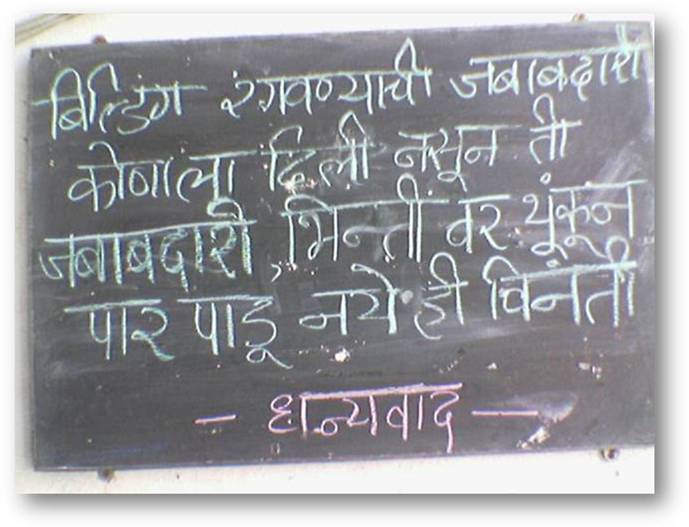 बिल्डिंग रंगवण्याची जबाबदारी
कोणाला दिली नसून ती
जबाबदारी भिन्तीं वर थूंकून
पार पाडू नये ही विनंती
- धन्यवाद -